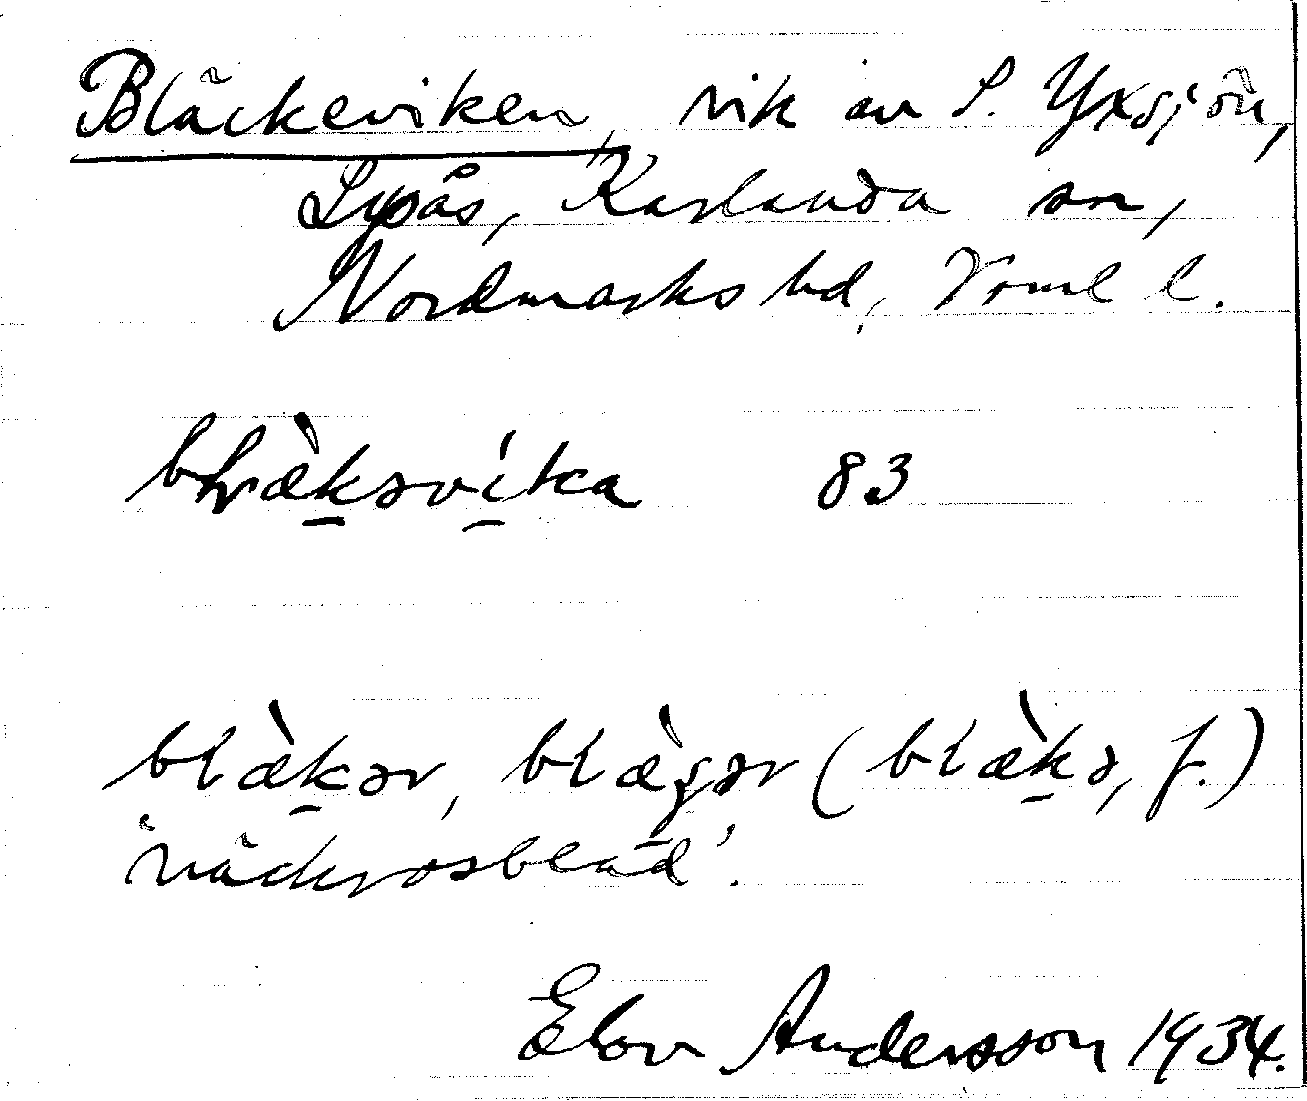 Bläckeviken, vik av S. Yxsjön,
Sypås, Karlanda sn,
Nordmarks hd, Vrml l.
blæ̀kəvíka 83
blæ̀kər, blæ̀gər (blæ̀kə, f.)
'näckrosblad'.
Elov Andersson 1934.